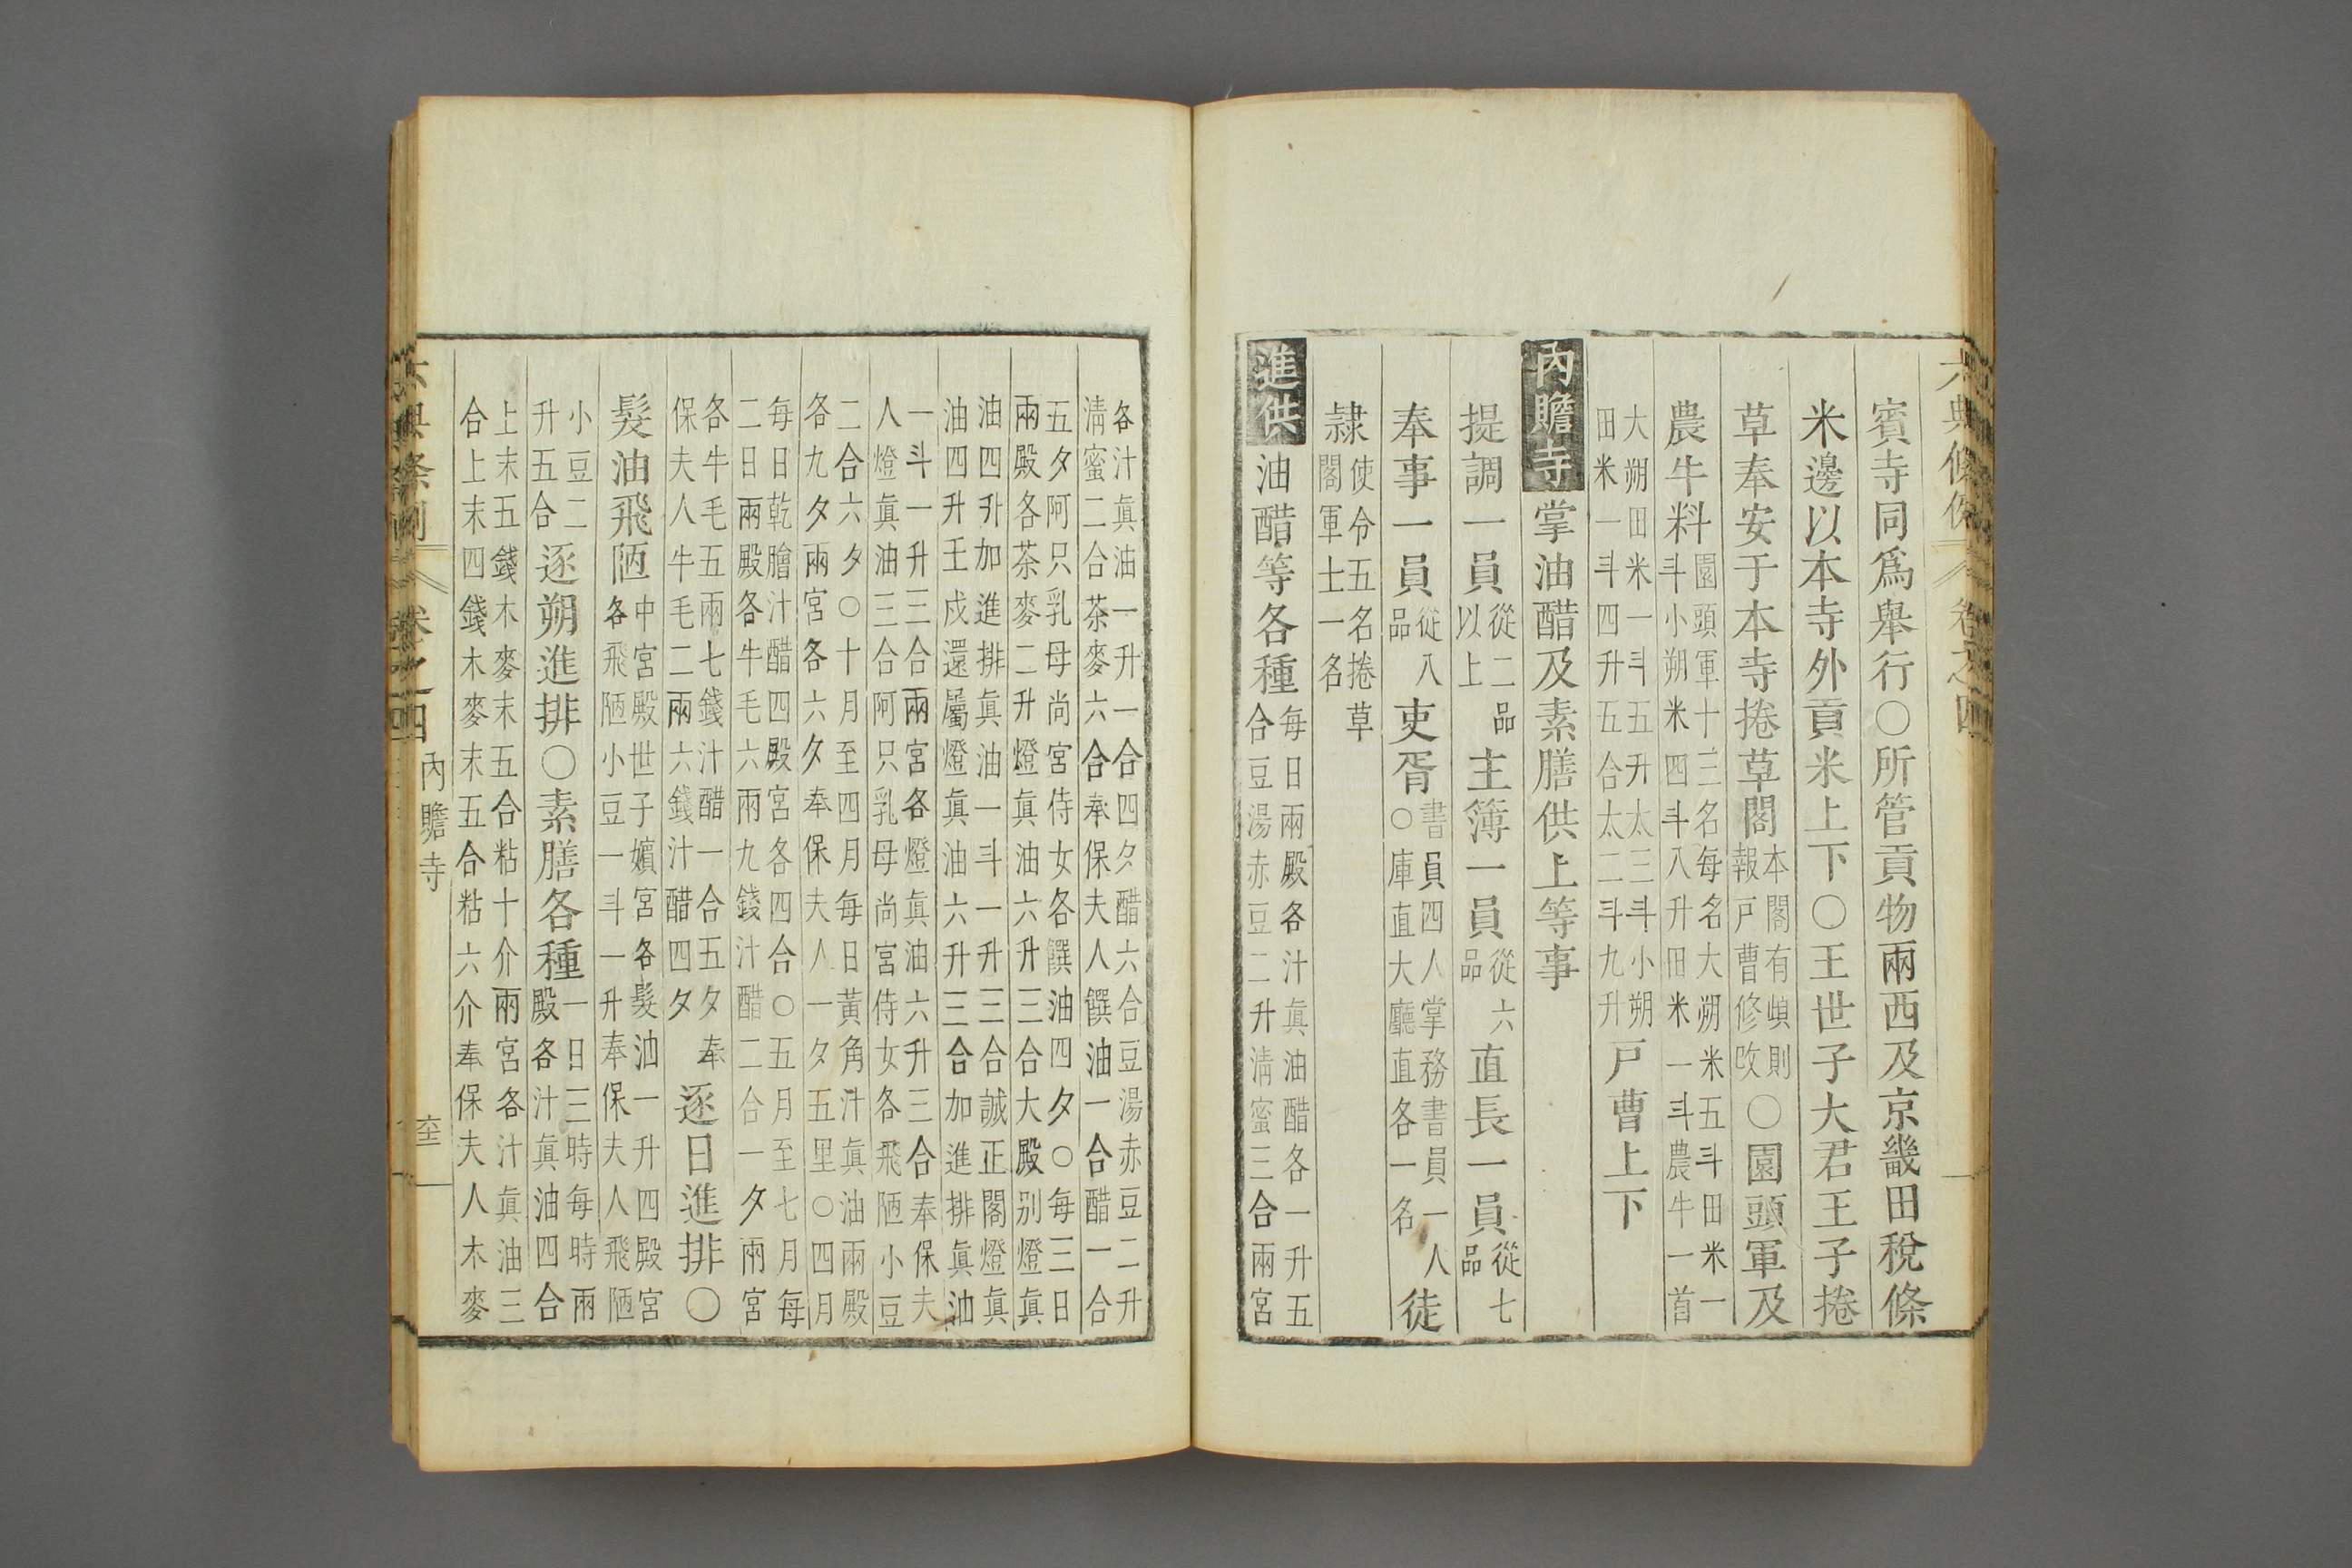 賓寺同爲擧行○所管貢物兩西及京畿田稅條
米邊以本寺外貢米上下○王世子大君王子捲
草奉安于本寺捲草閣本閣有頉則報戶曹修改○園頭軍及
農牛料園頭軍十三名每名大朔米五斗田米一斗小朔米四斗八升田米一斗農牛一首
大朔田米一斗五升太三斗小朔田米一斗四升五合太二斗九升戶曹上下
內贍寺掌油醋及素膳供上等事
提調一員從二品以上主簿一員從六品直長一員從七品
奉事一員從八品吏胥書員四人掌務書員一人○庫直大廳直各一名徒
隷使令五名捲草閣軍士一名
進供油醋等各種每日兩殿各汁眞油醋各一升五合豆湯赤豆二升淸蜜三合兩宮
各汁眞油一升一合四夕醋六合豆湯赤豆二升淸蜜二合茶麥六合奉保夫人饌油一合醋一合
五夕阿只乳母尙宮侍女各饌油四夕○每三日兩殿各茶麥二升燈眞油六升三合大殿別燈眞
油四升加進排眞油一斗一升三合誠正閣燈眞油四升壬戌還屬燈眞油六升三合加進排眞油
一斗一升三合兩宮各燈眞油六升三合奉保夫人燈眞油三合阿只乳母尙宮侍女各飛陋小豆
二合六夕○十月至四月每日黃角汁眞油兩殿各九夕兩宮各六夕奉保夫人一夕五里○四月
每日乾膾汁醋四殿宮各四合○五月至七月每二日兩殿各牛毛六兩九錢汁醋二合一夕兩宮
各牛毛五兩七錢汁醋一合五夕奉保夫人牛毛二兩六錢汁醋四夕逐日進排○
髮油飛陋中宮殿世子嬪宮各髮油一升四殿宮各飛陋小豆一斗一升奉保夫人飛陋
小豆二升五合逐朔進排○素膳各種一日三時每時兩殿各汁眞油四合
上末五錢木麥末五合粘十介兩宮各汁眞油三合上末四錢木麥末五合粘六介奉保夫人木麥
六典條例 卷之四 內贍寺